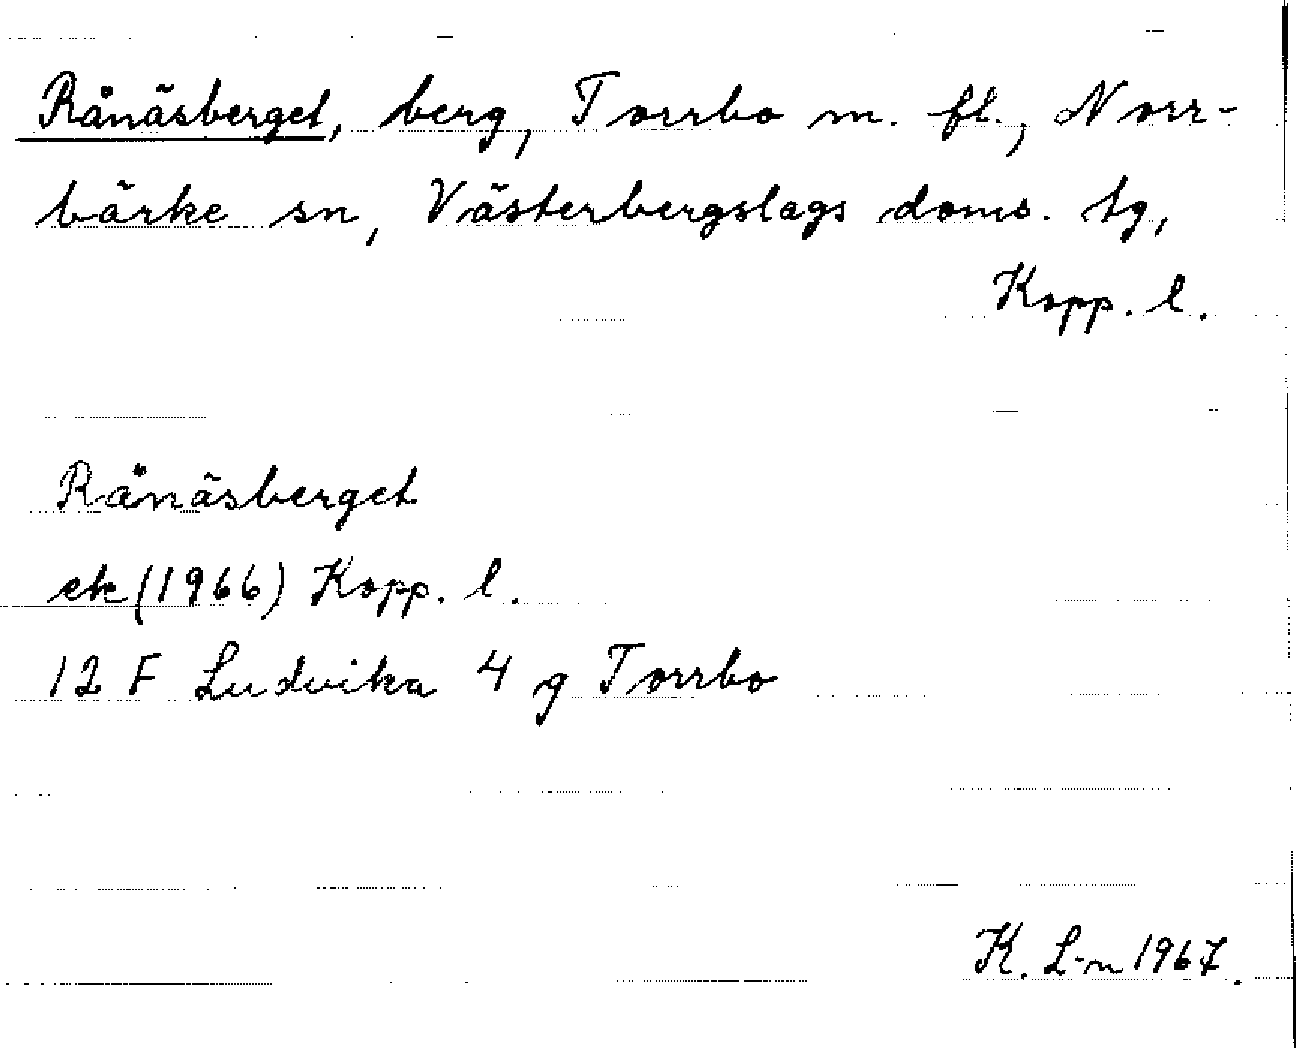 Rånäsberget, berg, Torrbo m. fl., Norr-
bärke sn, Västerbergslags doms. tg,
Kopp. l.
Rånäsberget
ek (1966) Kopp. l.
12 F Ludvika 4 g Torrbo
K. L-n 1967.